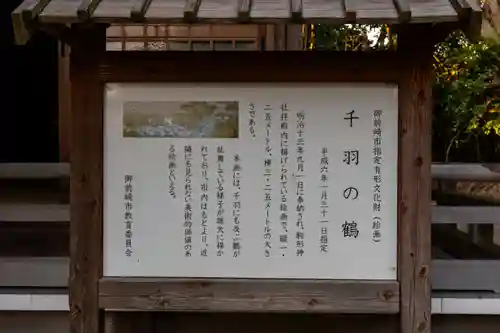 御前崎市指定有形文化財(絵画)
千羽の鶴
平成六年一月三十一日指定
明治十三年九月一日に奉納され、駒形神
社拝殿内に掲げられている絵画で、縦一・
二五メートル、横三・二五メートルの大き
さである。
本画には、千羽にも及ぶ鶴が
乱舞している様子が雄大に描か
れており、市内はもとより、近
隣にも見られない美術的価値のあ
る絵画といえる。
御前崎市教育委員会